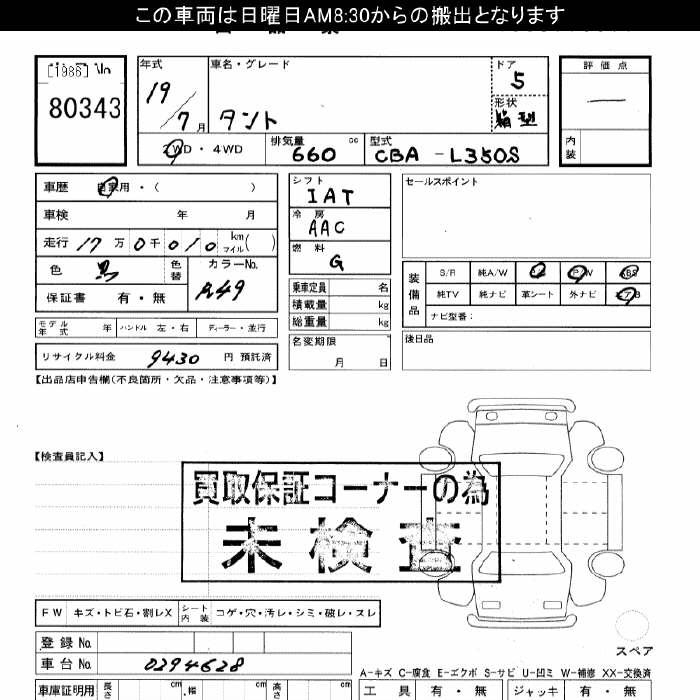 この車両は日曜日AM8:30からの搬出となります
[1986] No
80343
年式
19/7月
車名・グレード
タント
ドア
5
形状
箱型
評価点
—
内装
2WD・4WD
排気量
660 cc
型式
CBA-L350S
車歴 自家用・( )
車検 年 月
走行 17万0千010 km マイル( )
色 黒
色替
カラーNo.
A49
保証書 有・無
モデル年式 年 ハンドル 左・右 ディーラー・並行
リサイクル料金 9430 円 預託済
シフト
IAT
冷房
AAC
燃料
G
乗車定員 名
積載量 kg
総重量 kg
名変期限
月 日
セールスポイント
装備品
S/R 純A/W P/S P/W ABS
純TV 純ナビ 革シート 外ナビ エアB
ナビ型番:
後日品
【出品店申告欄(不良箇所・欠品・注意事項等)】
【検査員記入】
買取保証コーナーの為
未検査
FW キズ・トビ石・割レX シート内装 コゲ・穴・汚レ・シミ・破レ・スレ
登録No.
車台No. 0294628
スペア
A-キズ C-腐食 E-エクボ S-サビ U-凹ミ W-補修 XX-交換済
車庫証明用 長さ cm 幅 cm 高さ cm
工具 有・無 ジャッキ 有・無